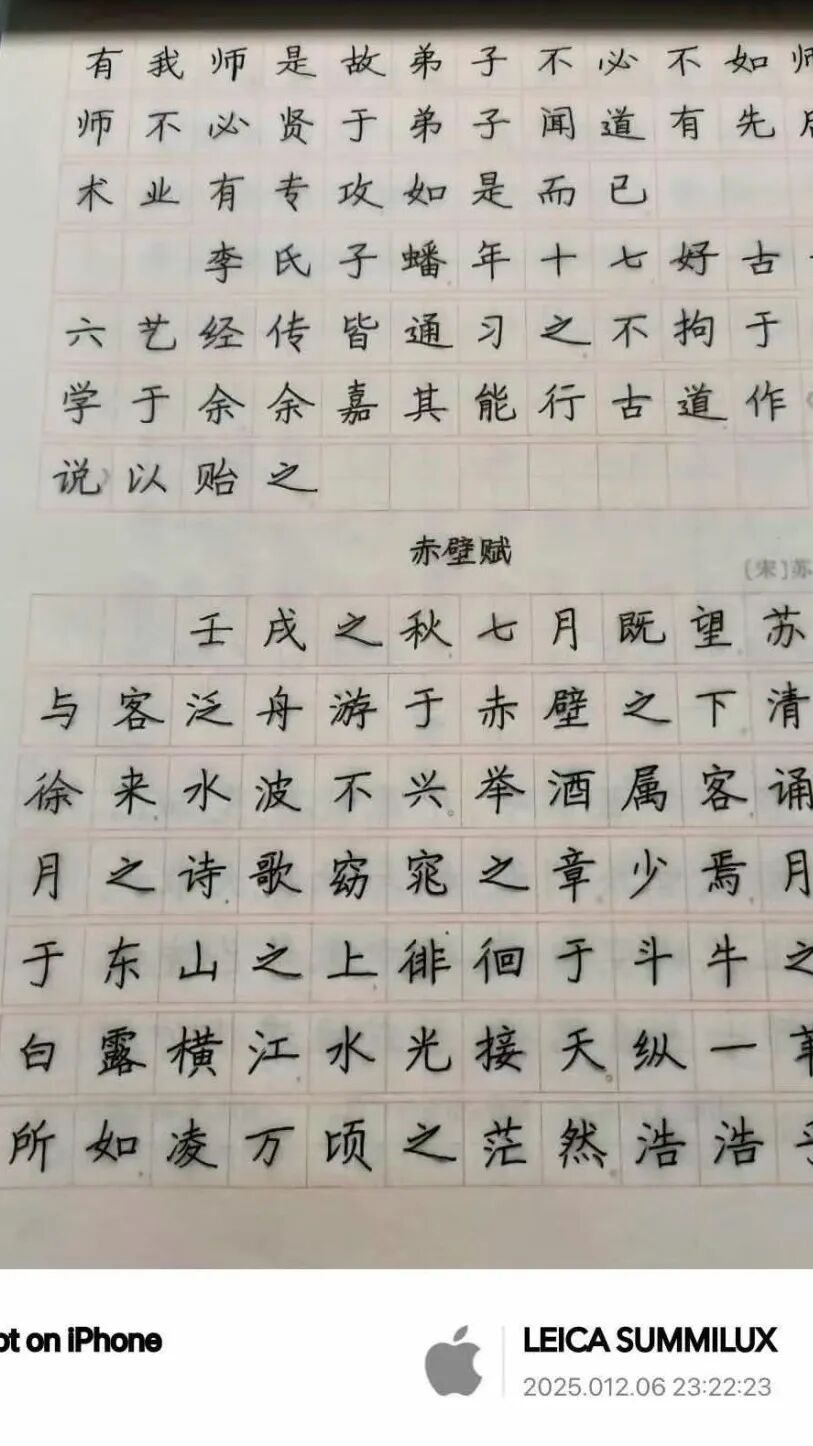 有我师是故弟子不必不如师
师不必贤于弟子闻道有先
术业有专攻如是而已
李氏子蟠年十七好古
六艺经传皆通习之不拘于
学于余余嘉其能行古道作
说以贻之
赤壁赋
[宋]苏
壬戌之秋七月既望苏
与客泛舟游于赤壁之下清
徐来水波不兴举酒属客诵
月之诗歌窈窕之章少焉月
于东山之上徘徊于斗牛之
白露横江水光接天纵一苇
所如凌万顷之茫然浩浩乎
ot on iPhone
LEICA SUMMILUX
2025.012.06 23:22:23